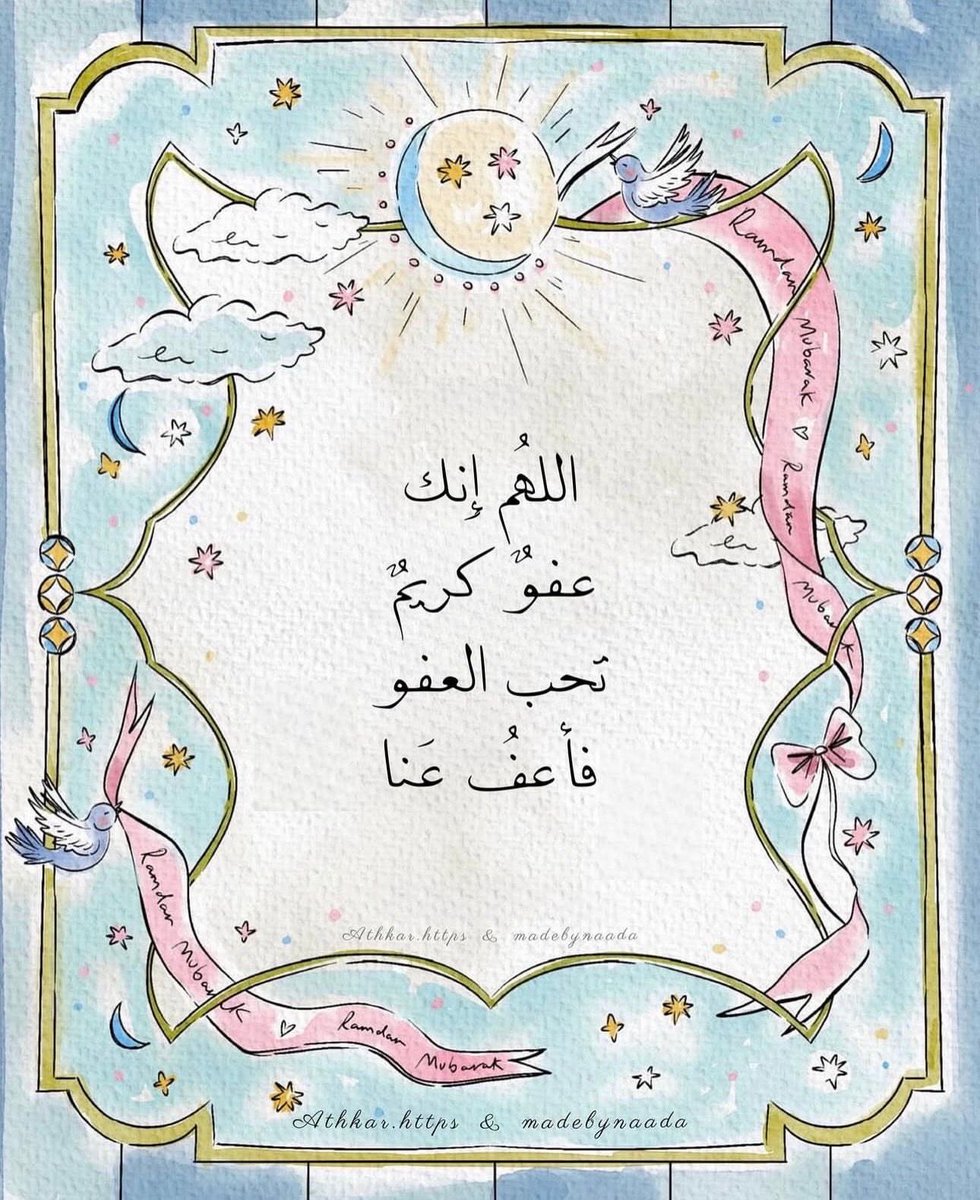 Ramdan Mubarak ♡ Ramdan Mubarak
اللهُم إنك
عفوٌ كريمٌ
تحب العفو
فأعفُ عَنا
Ramdan Mubarak ♡ Ramdan Mubarak
Athkar.https & madebynaada
Athkar.https & madebynaada